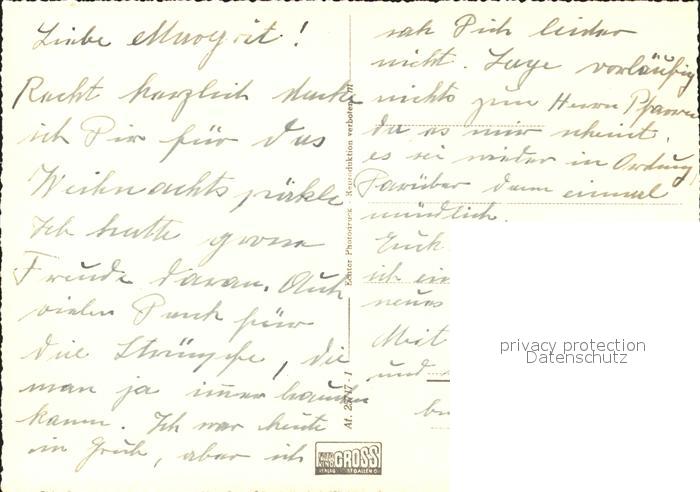 Liebe Margrit!
Recht herzlich danke
ich Dir für das
Weihnachtspäckle
Ich hatte grosse
Freude daran. Auch
vielen Dank für
die Strümpfe, die
man ja immer brauchen
kann. Ich war heute
in Grub, aber ich
sah Dich leider
nicht. Sage vorläufig
nichts zum Herrn Pfarrer
da es mir scheint,
es sei wieder in Ordnung
Darüber dann einmal
mündlich.
Euch
ich ein
neues
Mit
und
Echter Photodruck Reproduktion verboten
GROSS
VERLAG ST. GALLEN
privacy protection
Datenschutz